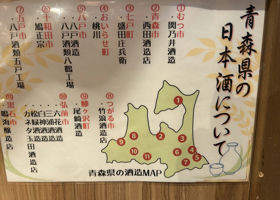 青森県の
日本酒について
①むつ市
・関乃井酒造
②青森市
・西田酒造店
③七戸町
・盛田庄兵衛
④おいらせ町
・桃川
⑤八戸市
・八戸酒造
・八戸酒類八鶴工場
⑥十和田市
・鳩正宗
⑦五戸市
・八戸酒類五戸工場
⑧つがる市
・竹浪酒造店
⑨鰺ヶ沢町
・尾崎酒造
⑩弘前市
・六花酒造
・三浦酒造
・白神酒造
・松緑酒造
・カネタ玉田酒造店
⑪黒石市
・鳴海醸造店
青森県の酒造MAP